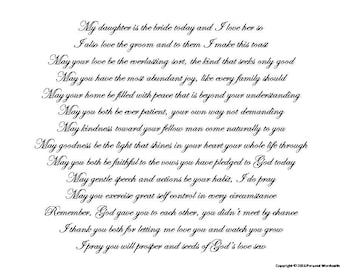 My daughter is the bride today and I love her so
I also love the groom and to them I make this toast
May your love be the everlasting sort, the kind that seeks only good
May you have the most abundant joy, like every family should
May your home be filled with peace that is beyond your understanding
May you both be ever patient, your own way not demanding
May kindness toward your fellow man come naturally to you
May goodness be the light that shines in your heart your whole life through
May you both be faithful to the vows you have pledged to God today
May gentle speech and actions be your habit, I do pray
May you exercise great self control in every circumstance
Remember, God gave you to each other, you didn't meet by chance
I thank you both for letting me love you and watch you grow
I pray you will prosper and seeds of God's love sow
Copyright © 2014 Personal Wordsmith